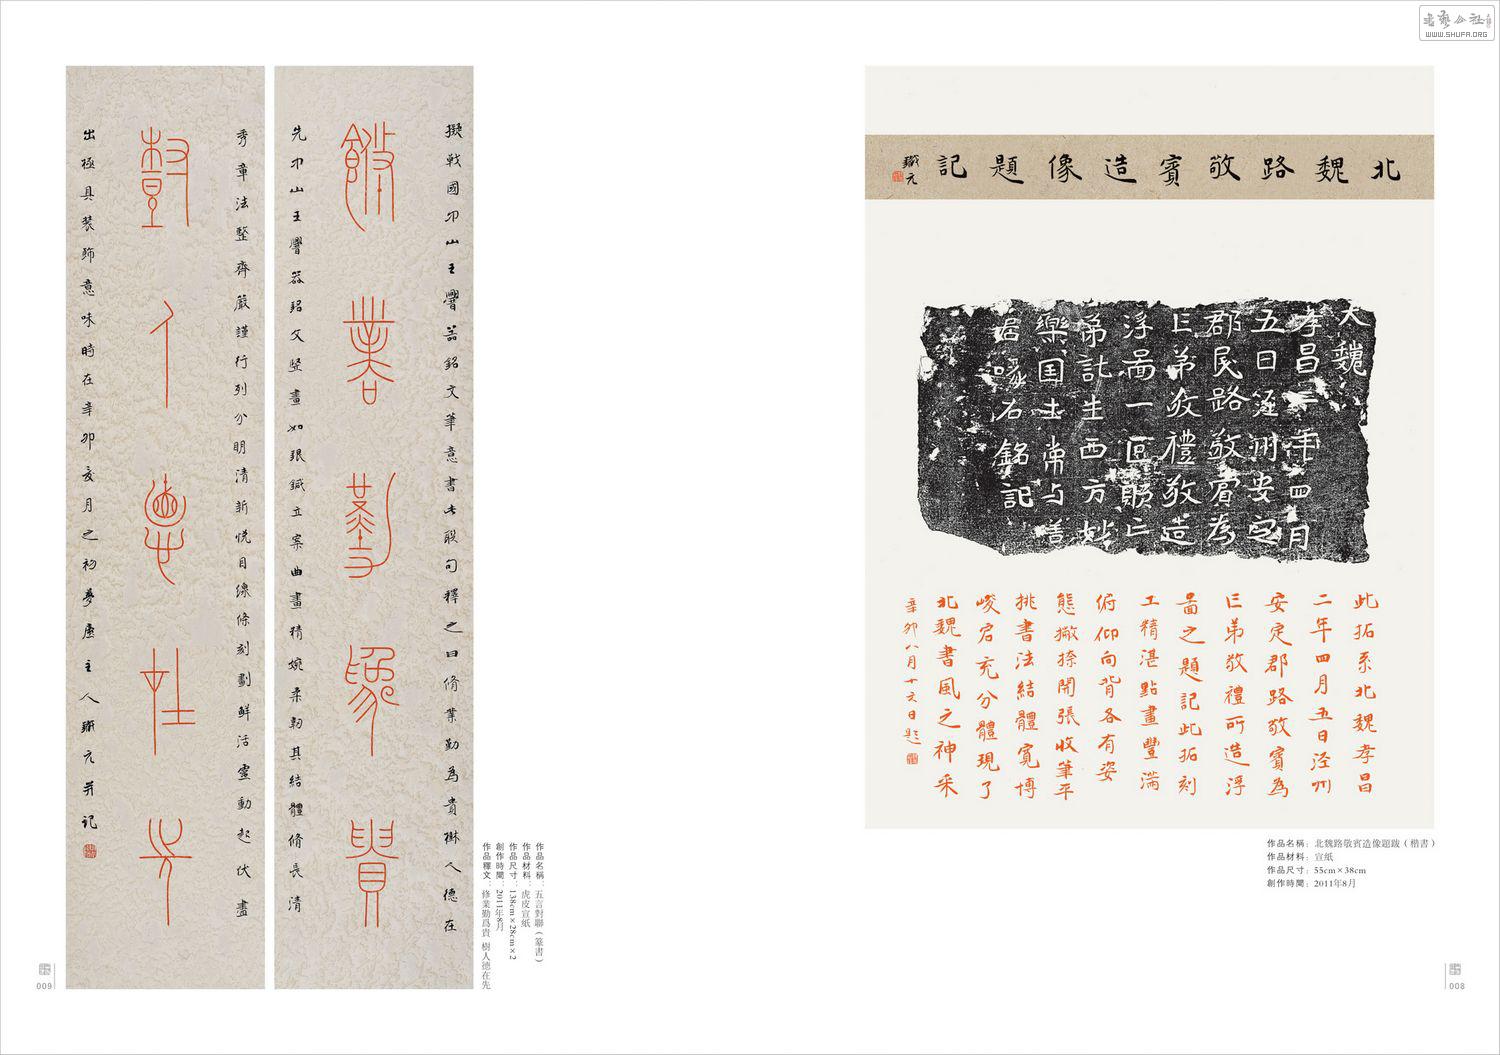 書藝公社
WWW.SHUFA.ORG
北魏路敬賓造像題記
鐵元
大魏
孝昌二年四月
五日涇州安定
郡民路敬賓為
亡弟敬禮敬造
浮啚一區願亡
弟託生西方妙
樂国土常与善
居
右銘記
此拓系北魏孝昌
二年四月五日泾州
安定郡路敬賓為
亡弟敬禮所造浮
啚之題記此拓刻
工精湛點畫豐滿
俯仰向背各有姿
態撇捺開張收筆平
挑書法結體寬博
峻宕充分體現了
北魏書風之神采
辛卯八月十六日題
作品名稱：北魏路敬賓造像題跋（楷書）
作品材料：宣紙
作品尺寸：55cm×38cm
創作時間：2011年8月
008
擬戰國中山王譻器銘文筆意書此聯句釋之曰脩業勤為貴樹人德在
脩業勤為貴
先中山王譻器銘文竪畫如銀鍼立案曲畫精婉柔韌其結體脩長清
秀章法整齊嚴謹行列分明清新悦目線條刻劃鮮活靈動起伏盡
樹人德在先
出極具裝飾意味時在辛卯夏月之初夢廬主人鐵元并记
作品名稱：五言對聯（篆書）
作品材料：虎皮宣紙
作品尺寸：138cm×28cm×2
創作時間：2011年8月
作品釋文：修業勤爲貴 樹人德在先
009